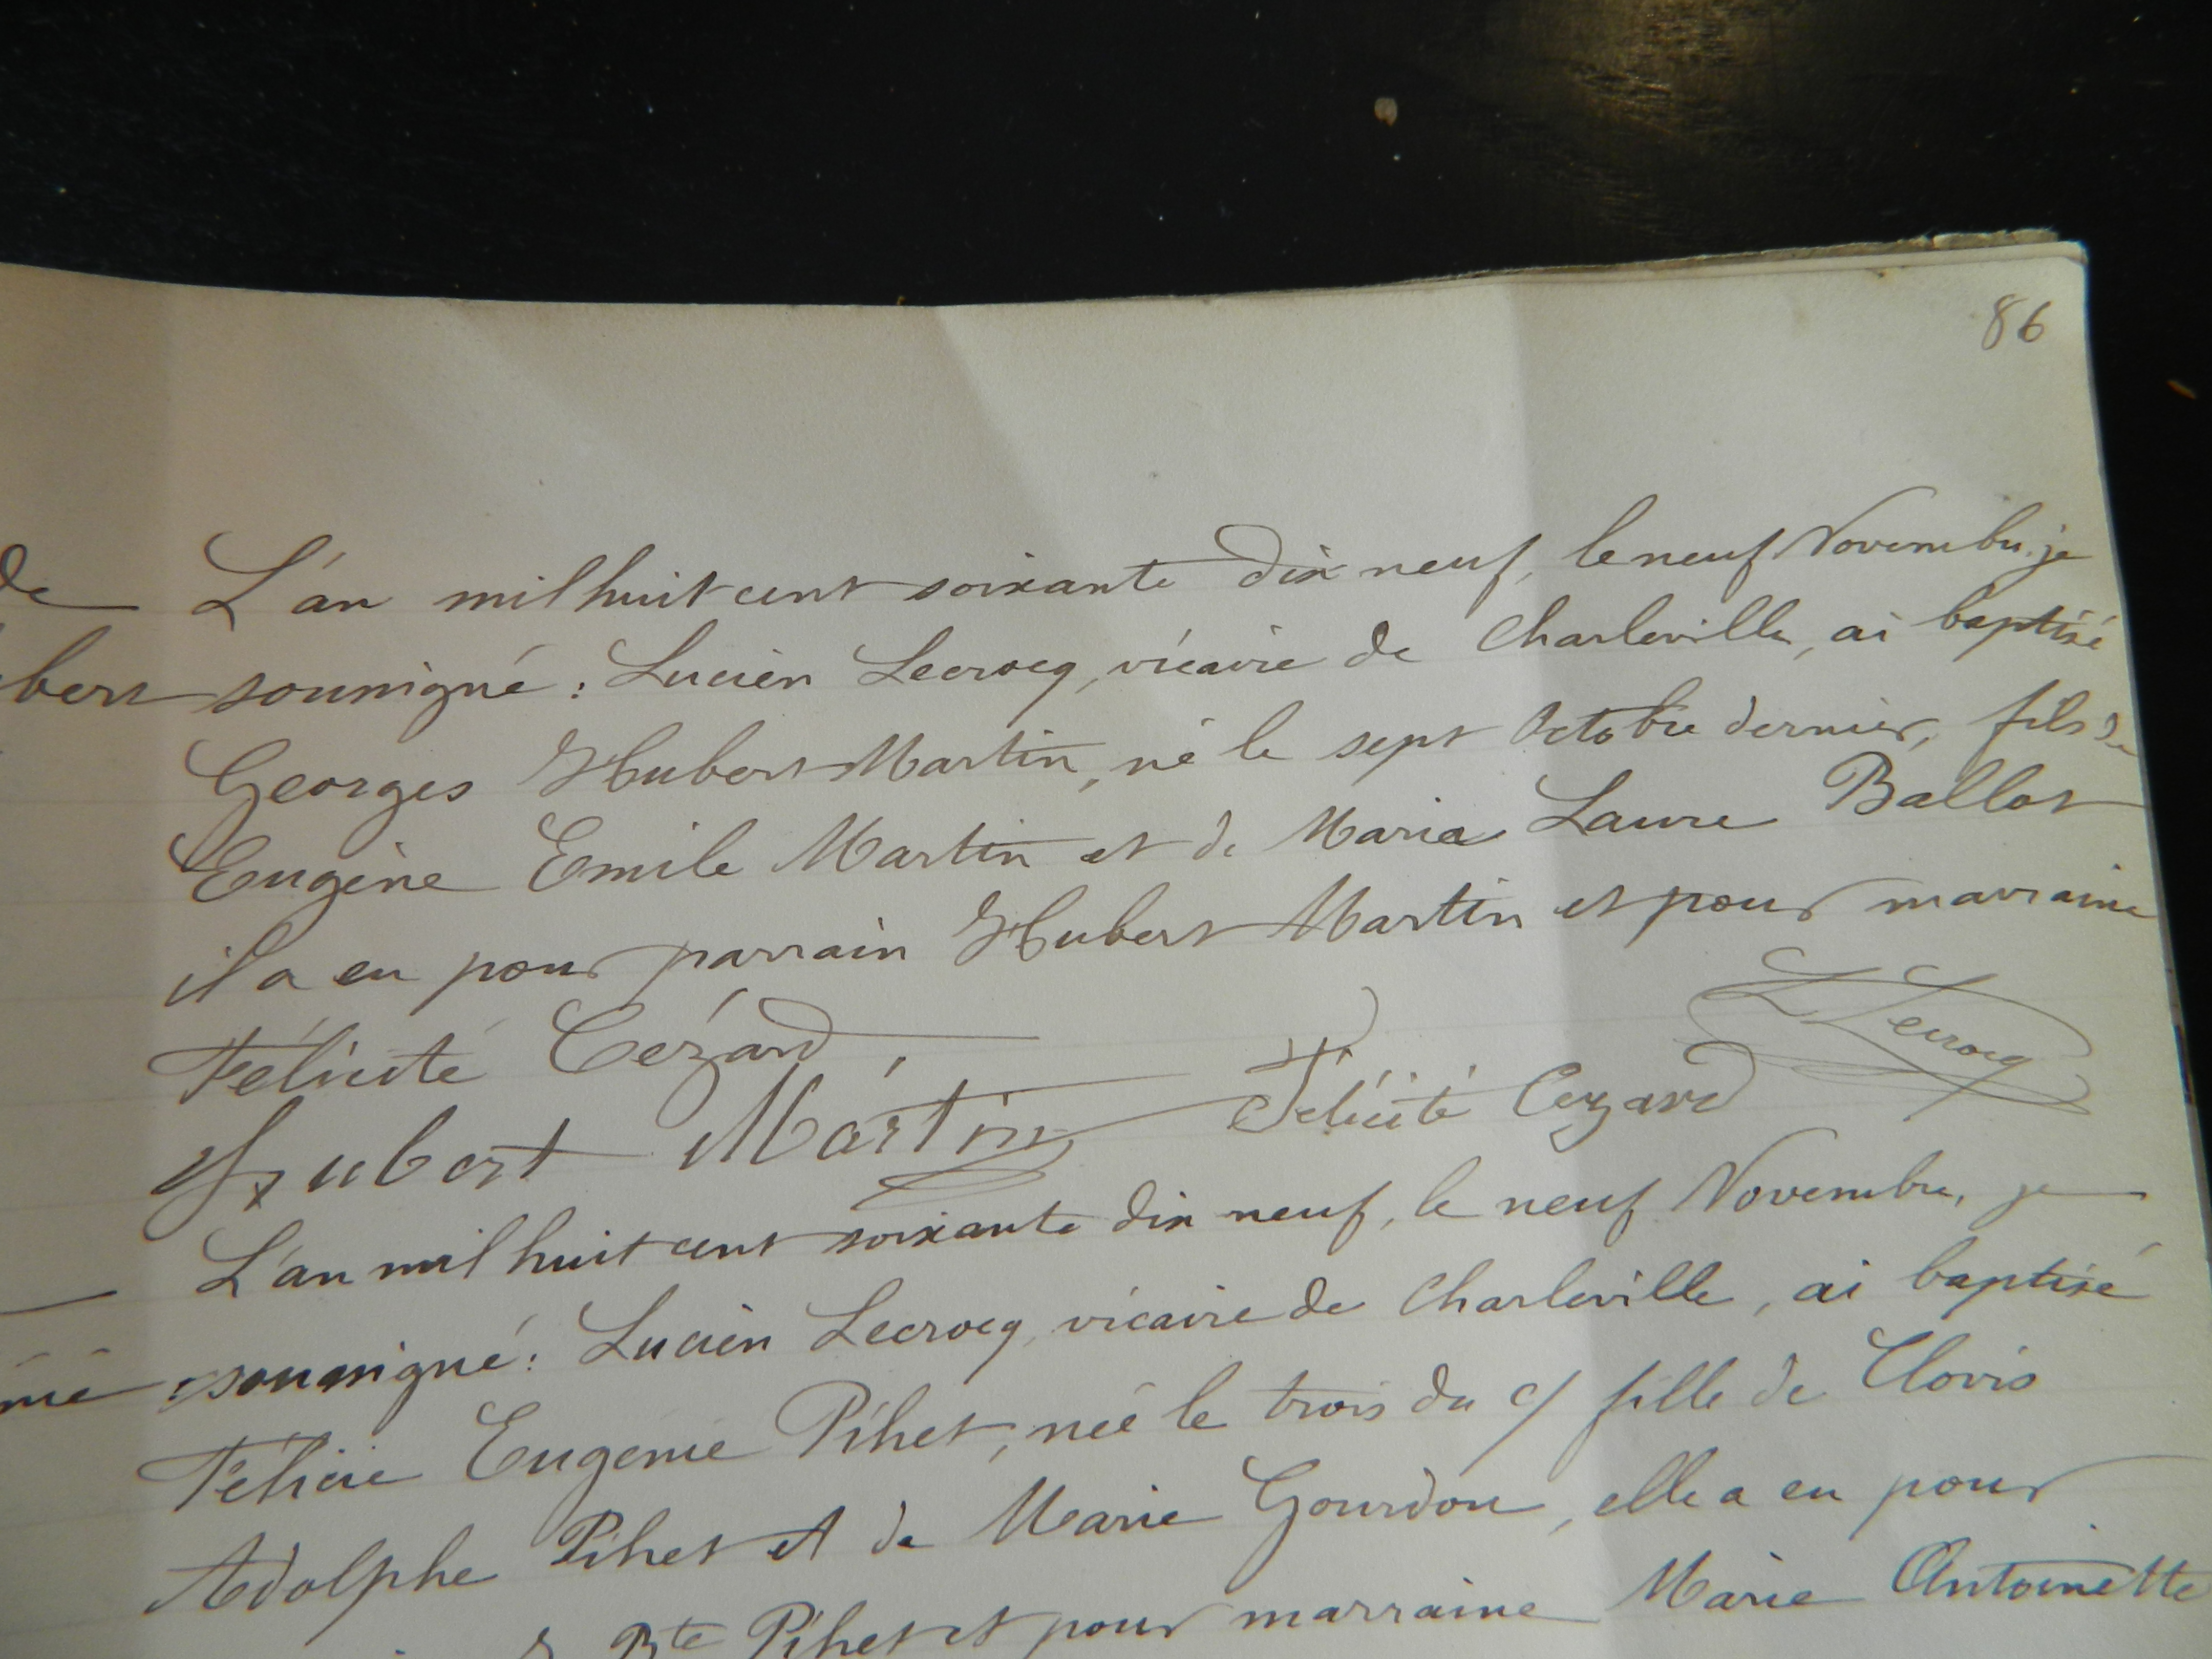 86
de
L'an mil huit cent soixante dix neuf, le neuf Novembre, je
bert
soussigné : Lucien Lecrocq, vicaire de Charleville, ai baptisé
Georges Hubert Martin, né le sept Octobre dernier, fils de
Eugène Emile Martin et de Maria Laure Ballot
il a eu pour parrain Hubert Martin et pour marraine
Félicité Cézard,
L Lecrocq
Hubert Martin Félicité Cezard
L'an mil huit cent soixante dix neuf, le neuf Novembre, je
mé
soussigné : Lucien Lecrocq, vicaire de Charleville, ai baptisé
Félicie Eugenie Pihet, née le trois du c/ fille de Clovis
Adolphe Pihet et de Marie Gourdou, elle a eu pour
Bte Pihet et pour marraine Marie Antoinette